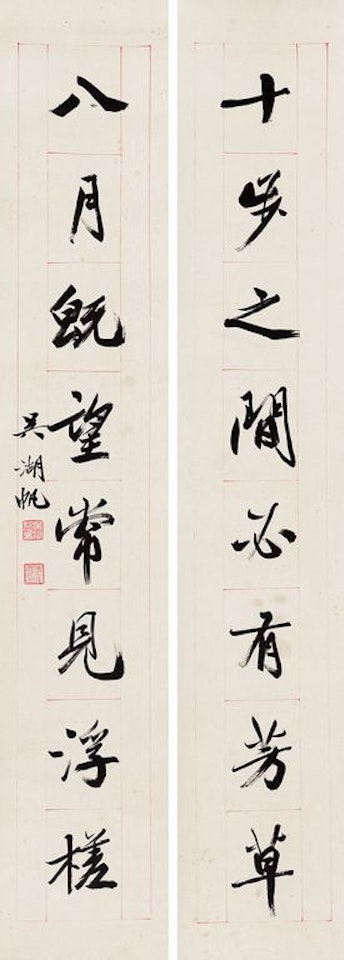 十步之間必有芳草
八月既望常見浮槎
吳湖帆